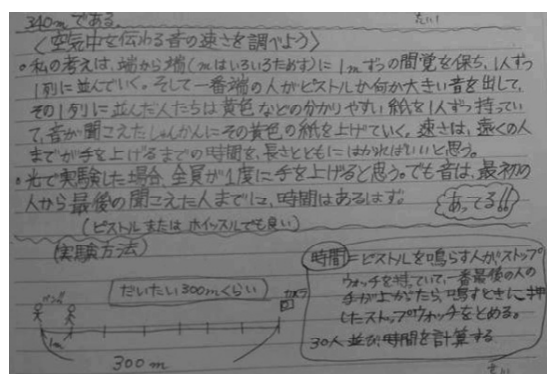 340mである。
〈空気中を伝わる音の速さを調べよう〉
・私の考えは、端から端(mはいろいろためす)に1mずつの間覚を保ち、1人ずつ
1列に並んでいく。そして一番端の人がピストルか何か大きい音を出して、
その1列に並んだ人たちは黄色などの分かりやすい紙を1人ずつ持ってい
て、音が聞こえたしゅんかんにその黄色の紙を上げていく。速さは、遠くの人
までが手を上げるまでの時間を、長さとともにはかればいいと思う。
・光で実験した場合、全員が1度に手を上げると思う。でも音は、最初の
人から最後の聞こえた人までに、時間はあるはず。
あってる!!
(ピストルまたはホイッスルでも良い)
(実験方法)
だいたい300mくらい
カメラ
1m
300m
時間=ピストルを鳴らす人がストップ
ウォッチを持っていて、一番最後の人の
手が上がったら、鳴すときに押
したストップウォッチをとめる。
30人並び、時間を計算する